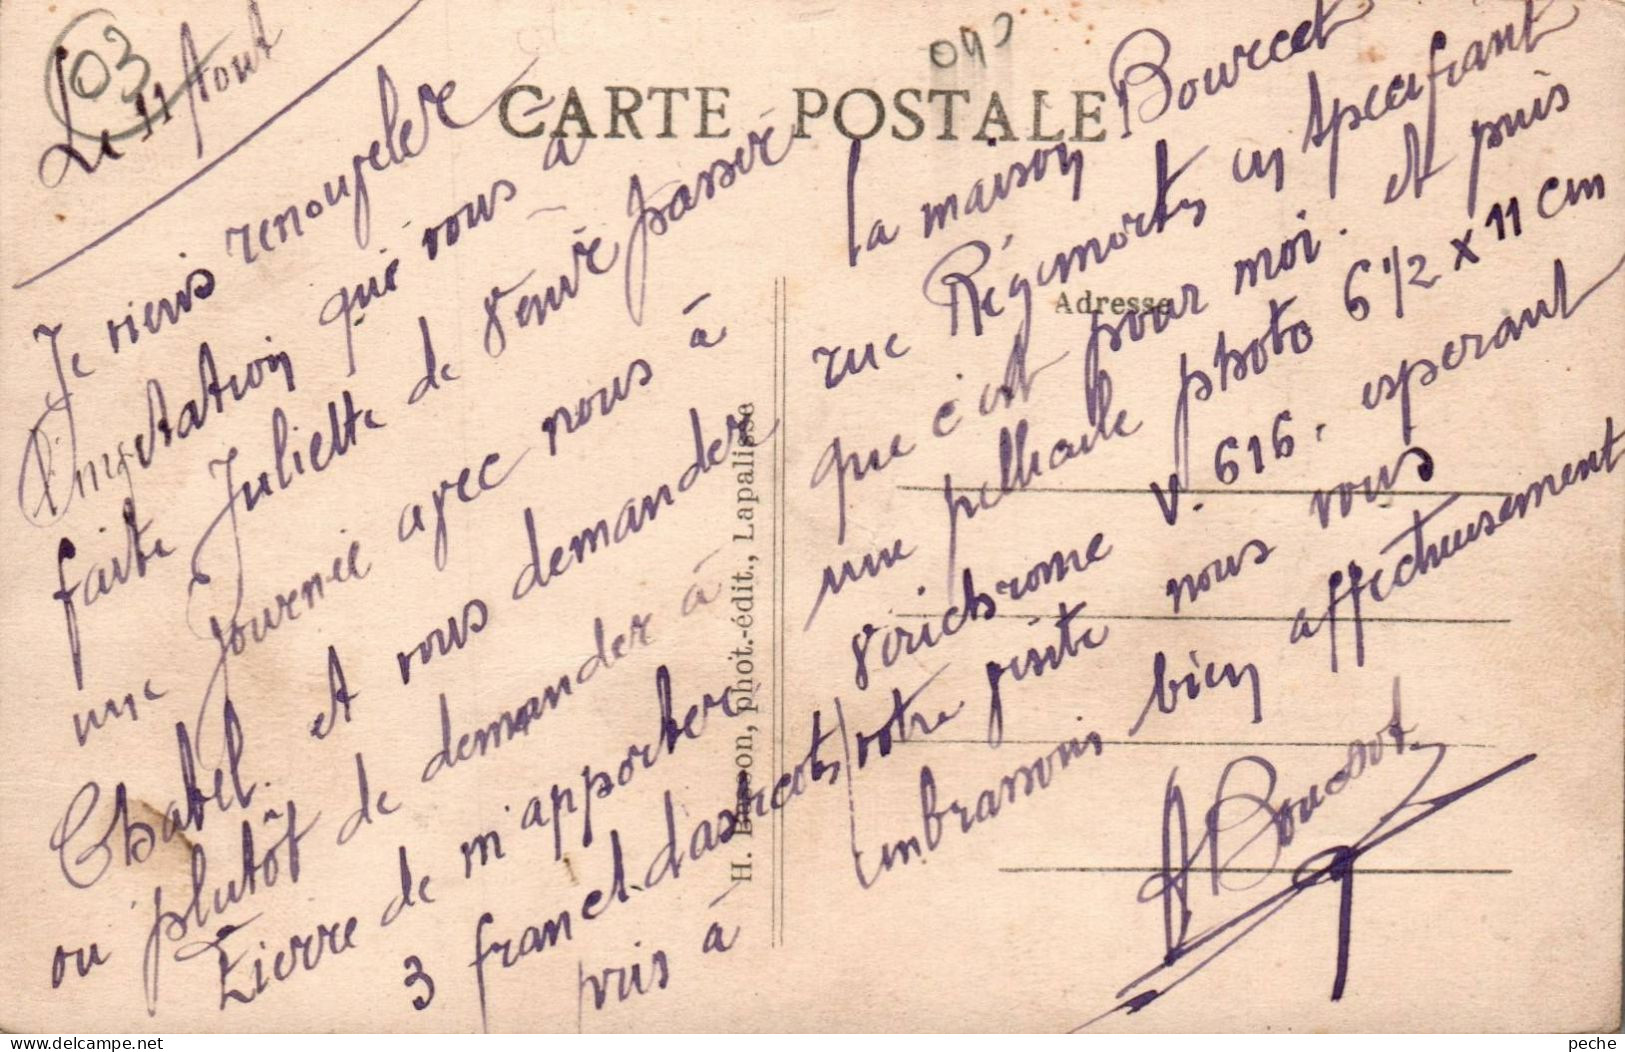 03
Le 11 Aout
CARTE POSTALE
Je viens renouveler
l'invitation que vous a
faite Juliette de venir passer
une journée avec nous à
Chatel. et vous demander
ou plutôt de demander à
Pierre de m'apporter
3 franc d'asticots
pris à
la maison Bourcet
rue Régemortes en specifiant
que c'est pour moi. et puis
une pellicule photo 6 1/2 x 11 cm
Verichrome V. 616. esperant
votre visite nous vous
embrassons bien affectueusement
A Boudot
Adresse
H. Basson, phot.-édit., Lapalisse
peche